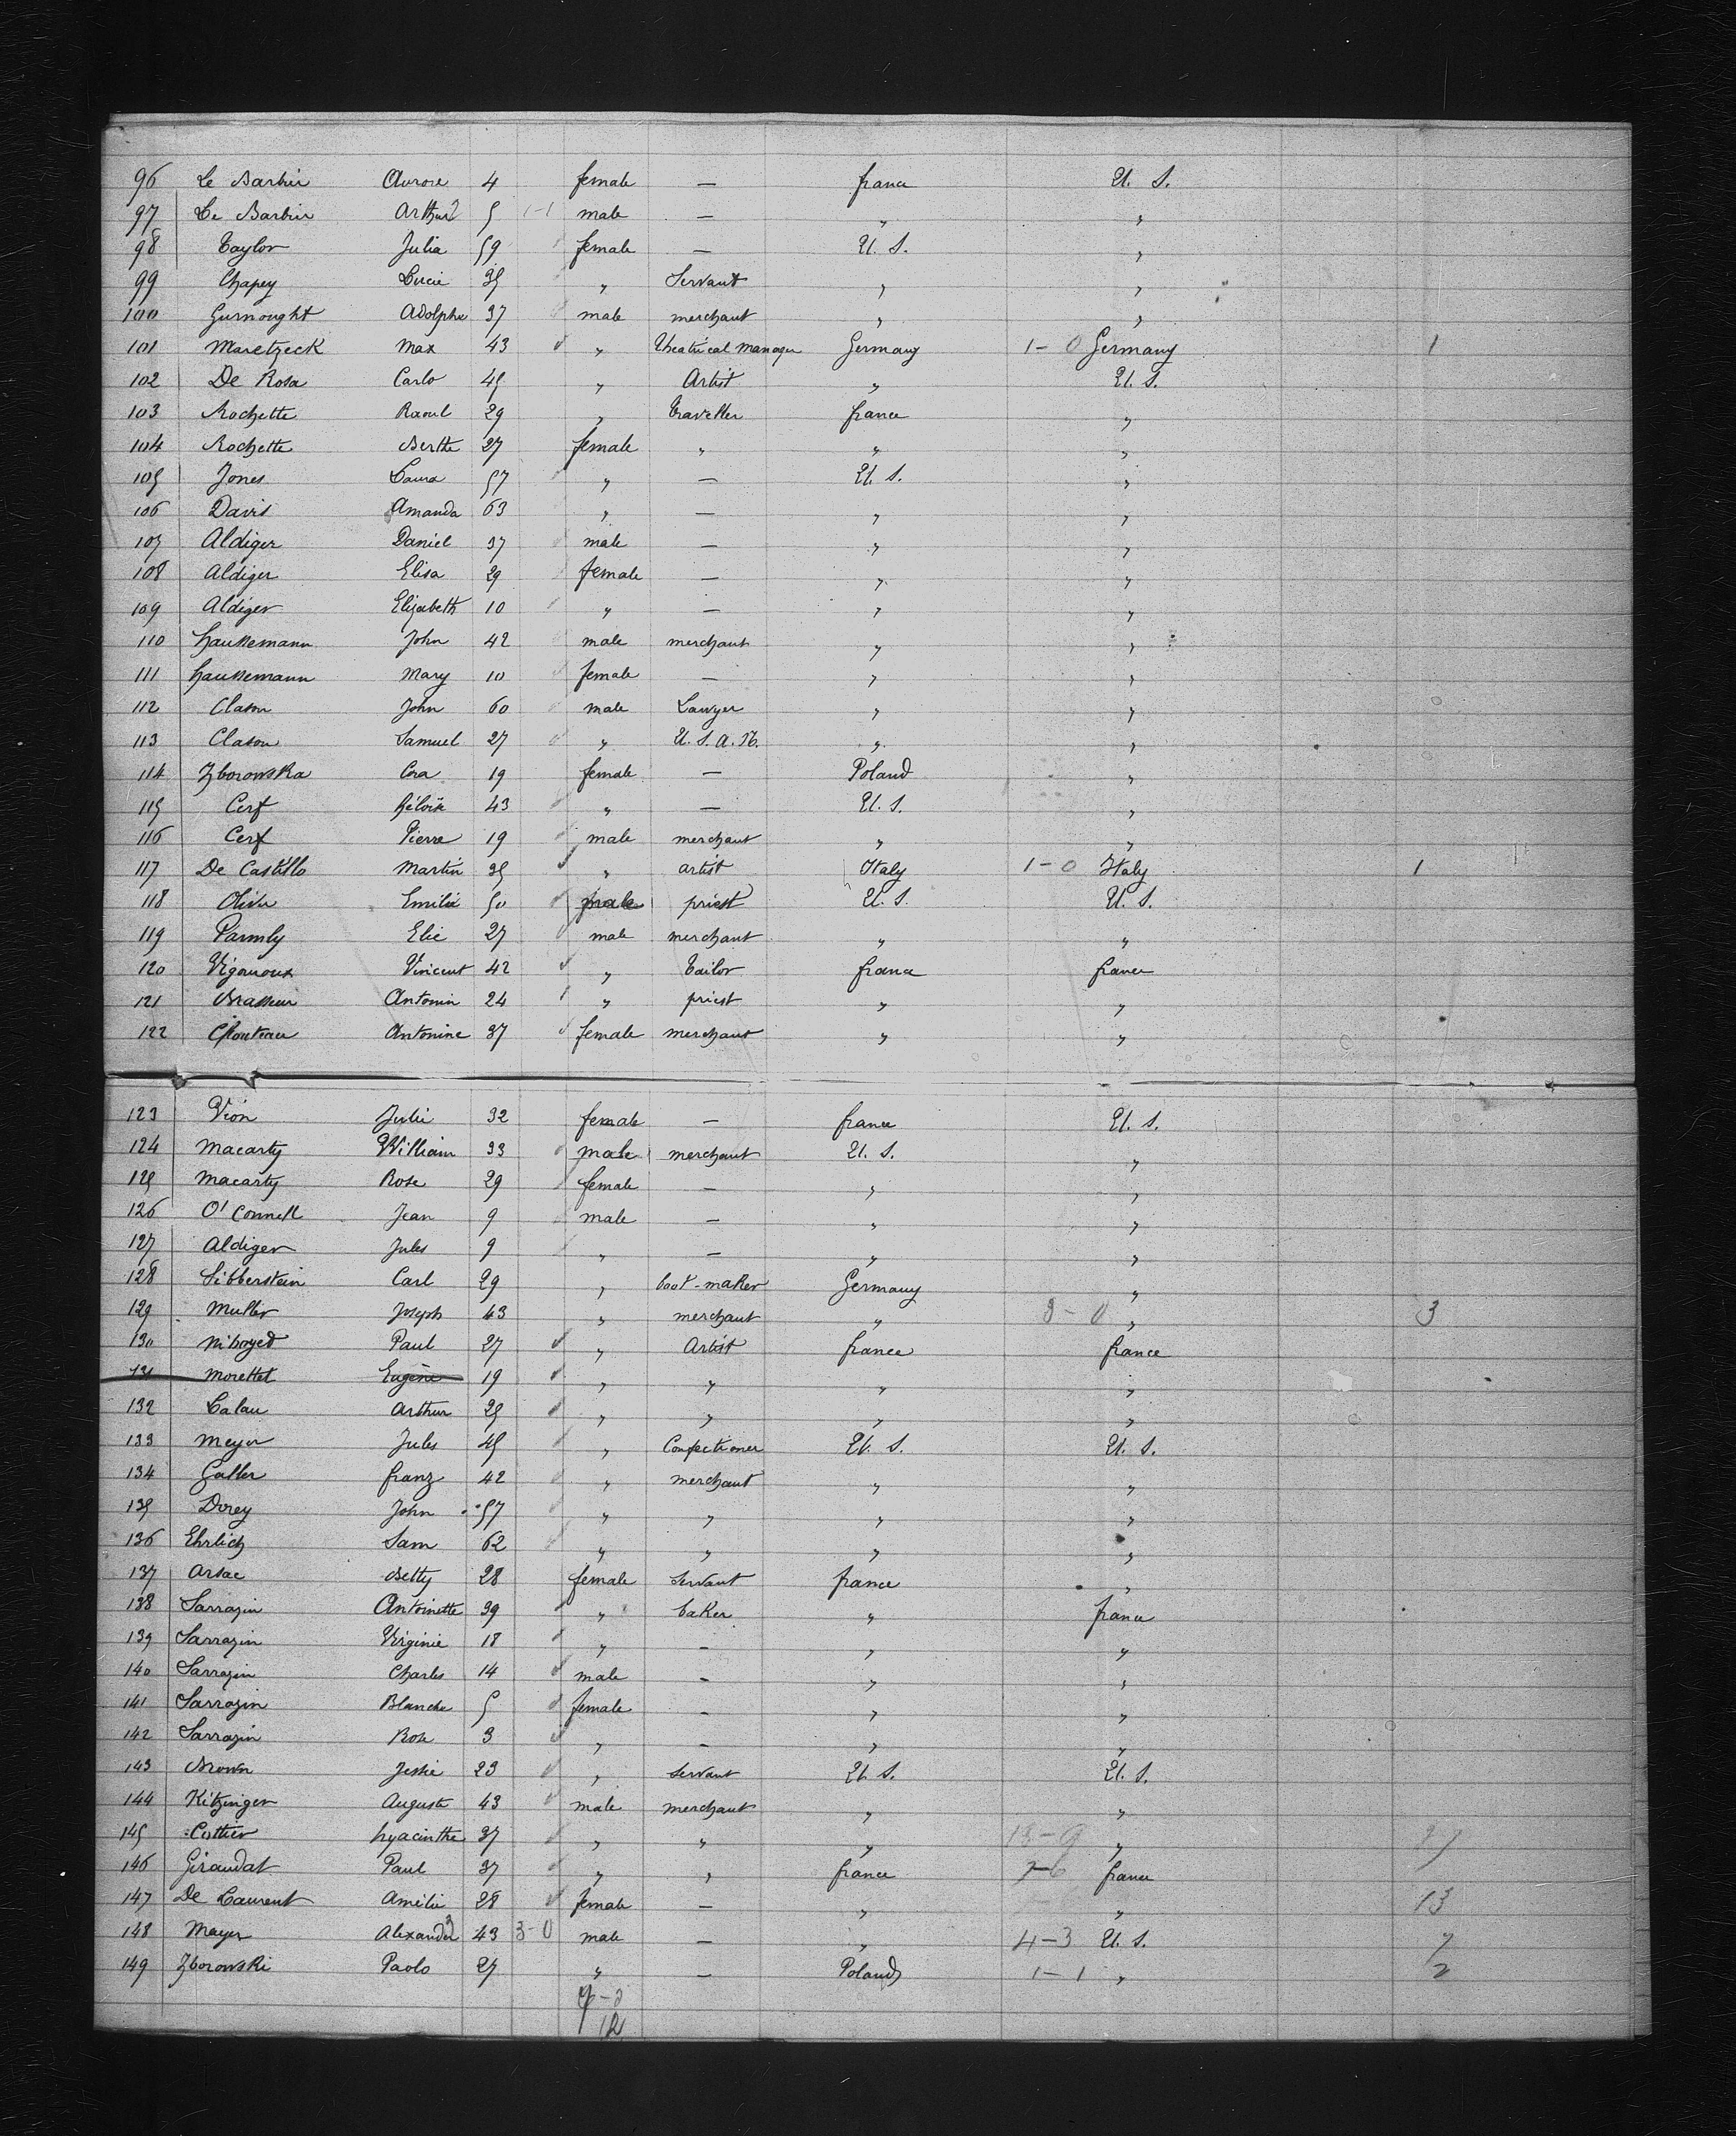 96 Le Barbier Aurore 4 female — france U. S.
97 Le Barbier Arthur 5 1-1 male — " "
98 Taylor Julia 59 female — U. S. "
99 Chapey Lucie 35 " Servant " "
100 Gurnought Adolphe 37 male merchant " "
101 Maretzeck Max 43 " Theatrical Manager Germany 1-0 Germany 1
102 De Rosa Carlo 45 " Artist " U. S.
103 Rochette Raoul 29 " Traveller france "
104 Rochette Berthe 27 female " " "
105 Jones Laura 57 " — U. S. "
106 Davis Amanda 63 " — " "
107 Aldiger Daniel 37 male — " "
108 Aldiger Elisa 29 female — " "
109 Aldiger Elizabeth 10 " — " "
110 haussemann John 42 male merchant " "
111 haussemann Mary 10 female — " "
112 Clason John 60 male Lawyer " "
113 Clason Samuel 27 " U. S. a. N. " "
114 Zborowska Cora 19 female — Poland "
115 Cerf héloïse 43 " — U. S. "
116 Cerf Pierre 19 male merchant " "
117 De Castillo Martin 35 " artist Italy 1-0 Italy 1
118 Olivier Emilie 50 male priest U. S. U. S.
119 Parmly Elie 27 male merchant " "
120 Vigouroux Vincent 42 " Tailor france france
121 Brasseur Antonin 24 " priest " "
122 Antonine 37 female merchant " "
123 Vion Julie 32 female — france U. S.
124 Macarty William 33 male merchant U. S. "
125 Macarty Rose 29 female — " "
126 O'Connell Jean 9 male — " "
127 Aldiger Jules 9 " — " "
128 Sibberstein Carl 29 " boot-maker Germany "
129 Muller Joseph 43 " merchant " 3-0 " 3
130 Niboyet Paul 27 " Artist france france
131 Morettet Eugène 19 " " " "
132 Calau Arthur 25 " " " "
133 Meyer Jules 45 " Confectioner U. S. U. S.
134 Galler franz 42 " merchant " "
135 Dorey John 57 " " " "
136 Ehrlich Sam 62 " " " "
137 Arsac Betty 28 female Servant france "
138 Sarrazin Antoinette 39 " baker " france
139 Sarrazin Virginie 18 " — " "
140 Sarrazin Charles 14 male — " "
141 Sarrazin Blanche 5 female — " "
142 Sarrazin Rose 3 " — " "
143 Brown Jessie 23 " Servant U. S. U. S.
144 Kitzinger Auguste 43 male merchant " "
145 Cottier hyacinthe 37 " " " 18-9 " 27
146 Giraudat Paul 37 " " france 7-6 france
147 De Laurent Amélie 28 female — " " 13
148 Mayer Alexander 43 3-0 male — " 4-3 U. S. 7
149 Zborowski Paolo 27 " — Poland 1-1 " 2
12